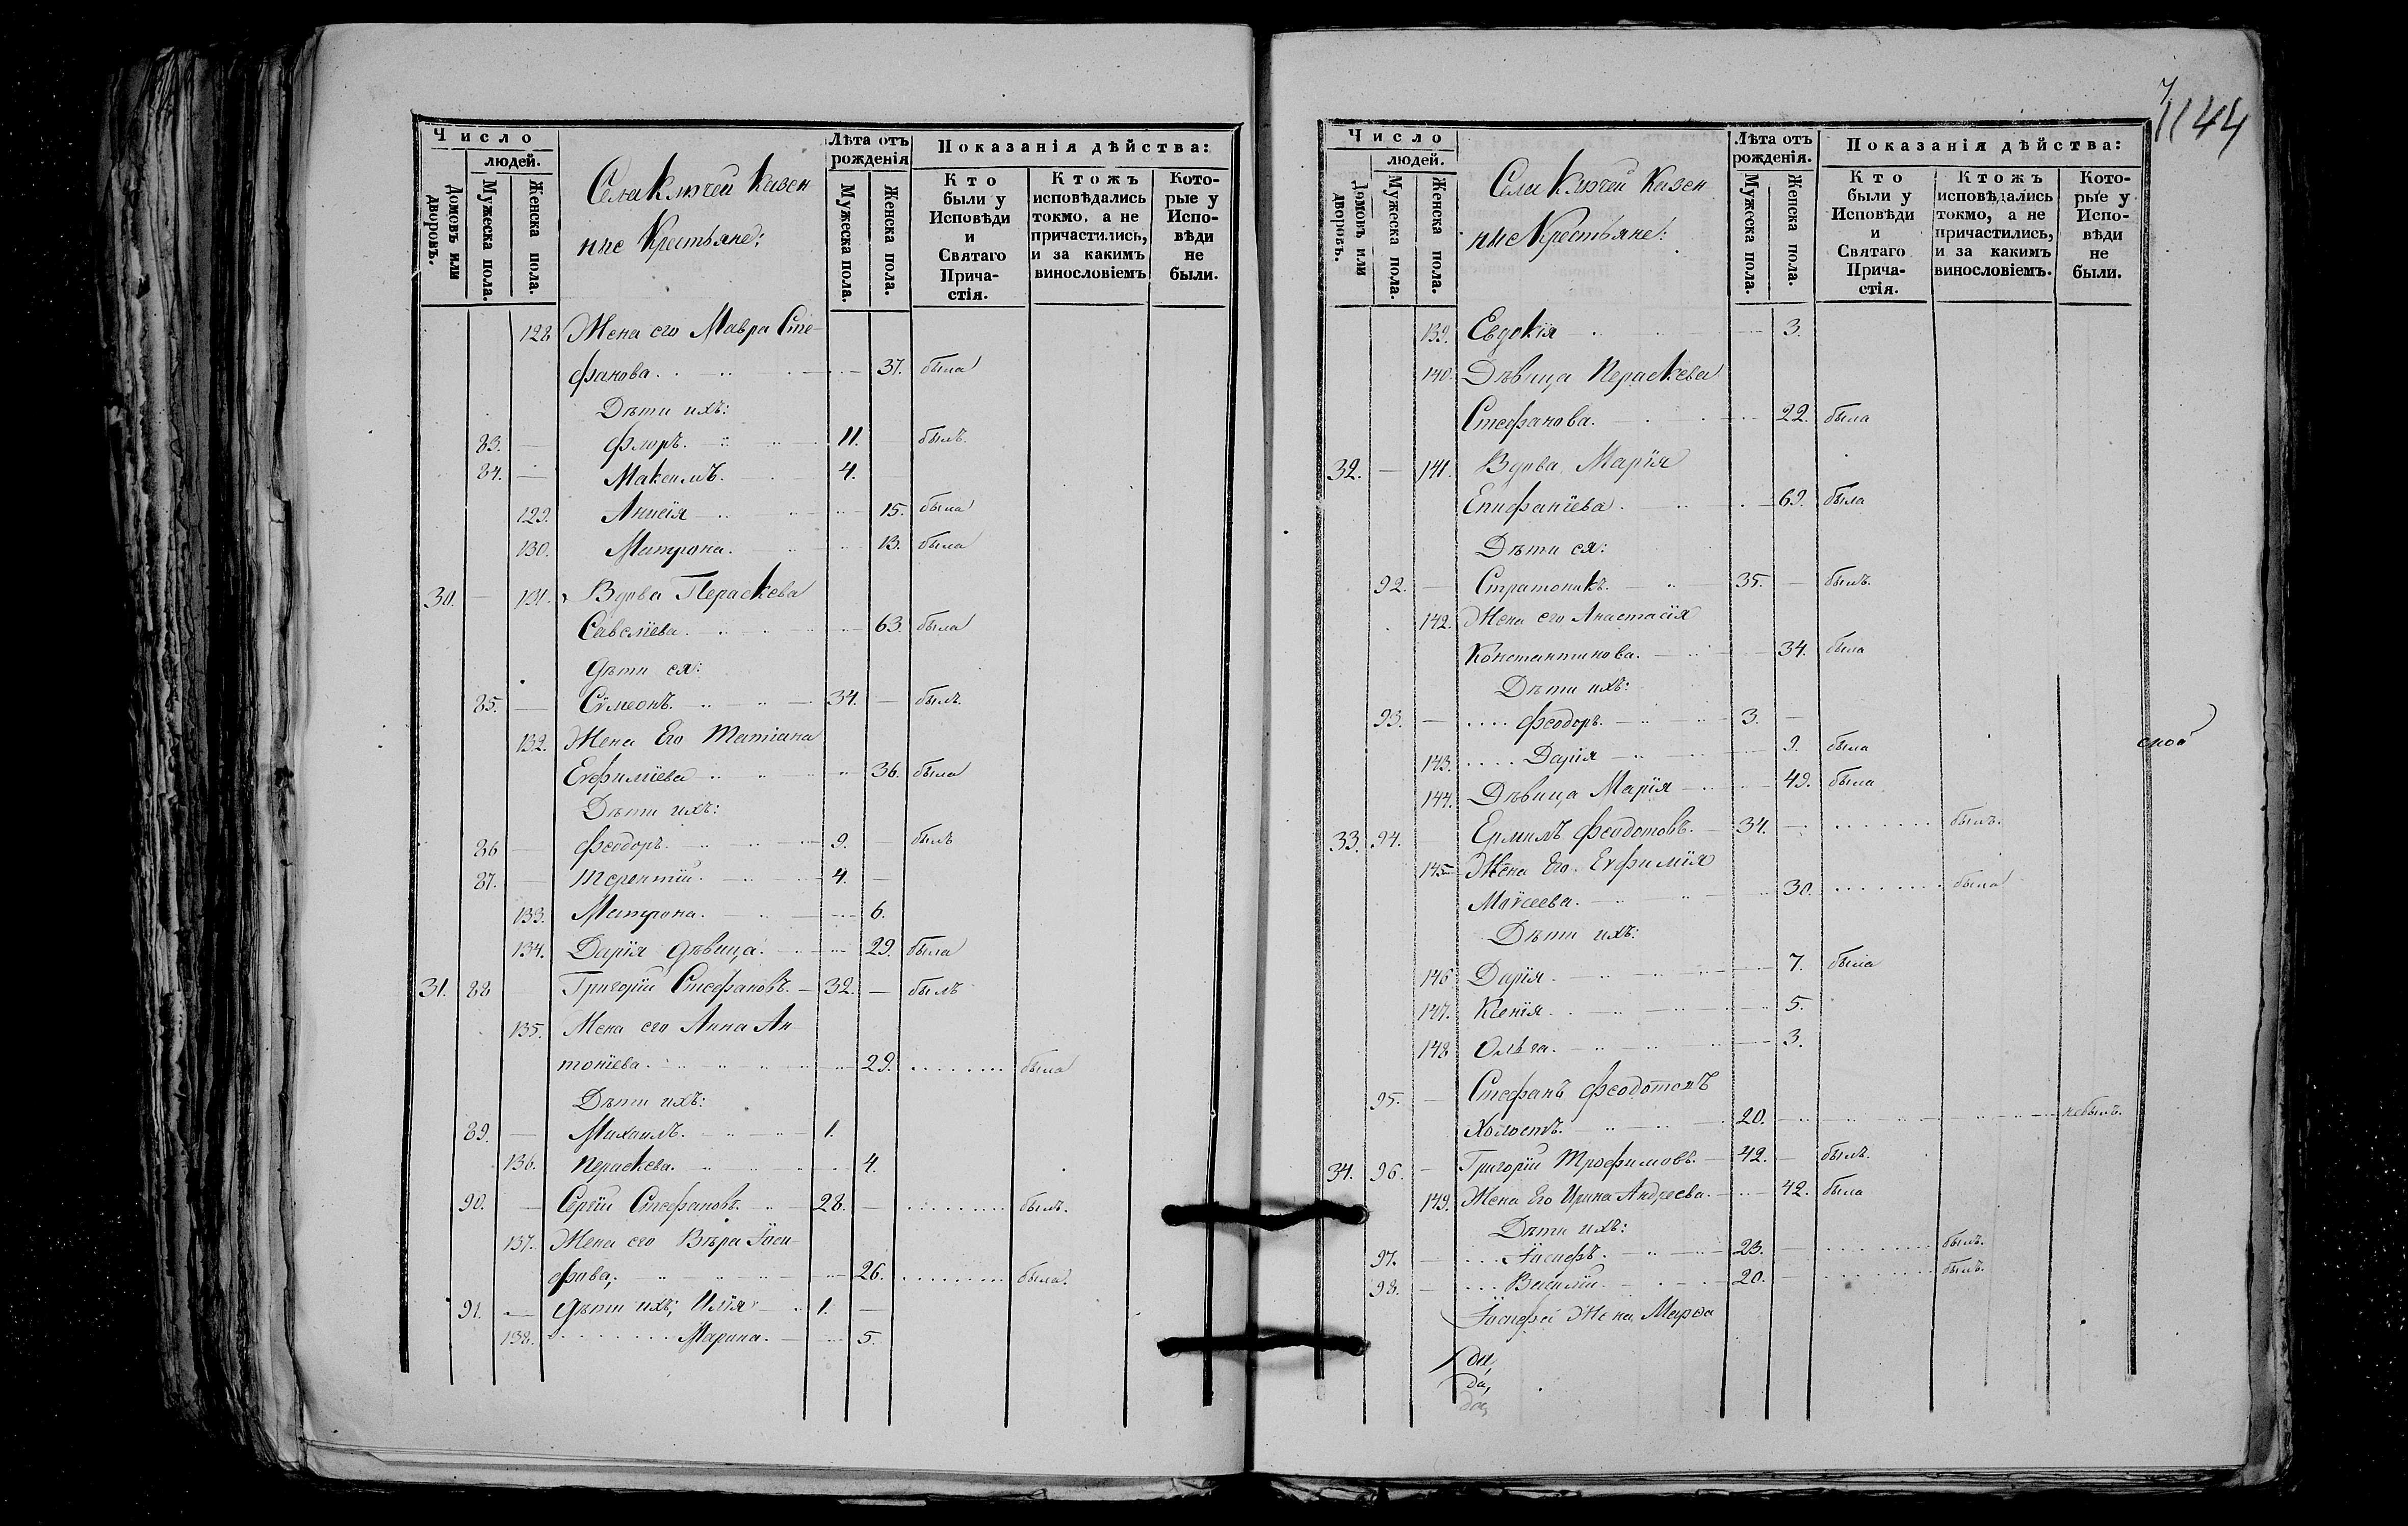 Число
людей.
Домовъ или дворовъ.
Мужеска пола.
Женска пола.
Села Ключей Казен
ные Крестьяне:
Лѣта отъ рожденія
Мужеска пола.
Женска пола.
Показанія дѣйства:
Кто были у Исповѣди и Святаго Прича- стія.
Ктожъ исповѣдались токмо, а не причастились, и за какимъ винословіемъ
Кото- рые у Испо- вѣди не были.
128 Жена его Мавра Сте-
фанова. 37. была
Дѣти ихъ:
83. — Флоръ. 11. былъ.
84. — Максимъ. 4.
129. Анисія 15. была
130. Матрона. 13. была
30. — 131. Вдова Пераскева
Савелїева. 63. была
дѣти ея:
85. — Сѵмеонъ. 34. — былъ.
132. Жена Его Татіана
Еѵфимїева 36. была
Дѣти ихъ:
86 — Феодоръ. 9. — былъ
87. — Терентій. 4. —
133. Матрона. 6.
134. Дарїя дѣвица. 29. была
31. 88 Григорїй Стефановъ. 32. — былъ
135. Жена его Анна Ан-
тонїева. 29. была
Дѣти ихъ:
89. — Михаилъ. 1.
136. Пераскева. 4.
90. — Сергїй Стефановъ. 28. — былъ.
137. Жена его Вѣра Їоси-
фова, 26. была.
91. — дѣти ихъ; Илїя 1. —
138. Марина. 5.
1144
Число
людей.
Домовъ или дворовъ.
Мужеска пола.
Женска пола.
Села Ключей Казен-
ные Крестьяне:
Лѣта отъ рожденія.
Мужеска пола.
Женска пола.
Показанія дѣйства:
Кто были у Исповѣди и Святаго Прича- стія.
Ктожъ исповѣдались токмо, а не причастились, и за какимъ винословіемъ.
Кото- рые у Испо- вѣди не были.
139. Евдокїя 3.
140. Дѣвица Пераскева
Стефанова. 22. была
32. — 141. Вдова Марїя
Епифанїева. 69. была
Дѣти ея:
92. — Стратоникъ. 35. — былъ.
142. Жена его Анастасїя
Константинова. 34. была
Дѣти ихъ:
93. — Феодоръ. 3. —
143. Дарїя 9. была
144. Дѣвица Марїя 49. была
33. 94. Ермилъ Феодотовъ. 34. — былъ.
145 Жена Его Еѵфимїя
Моѵсеева. 30. была
Дѣти ихъ:
146 Дарїя. 7. была
147. Ксенїя. 5.
148 Ольга. 3.
95. — Стефанъ Феодотовъ
Холостъ. 20. небылъ.
34. 96. — Григорїй Трофимовъ. 42. — былъ.
149. Жена Его Ирина Андреева. 42. была
Дѣти ихъ:
97. — Їосифъ. 23. — былъ.
98. — Василїй. 20. — былъ.
Їосифа Жена Марѳа
да,
да,